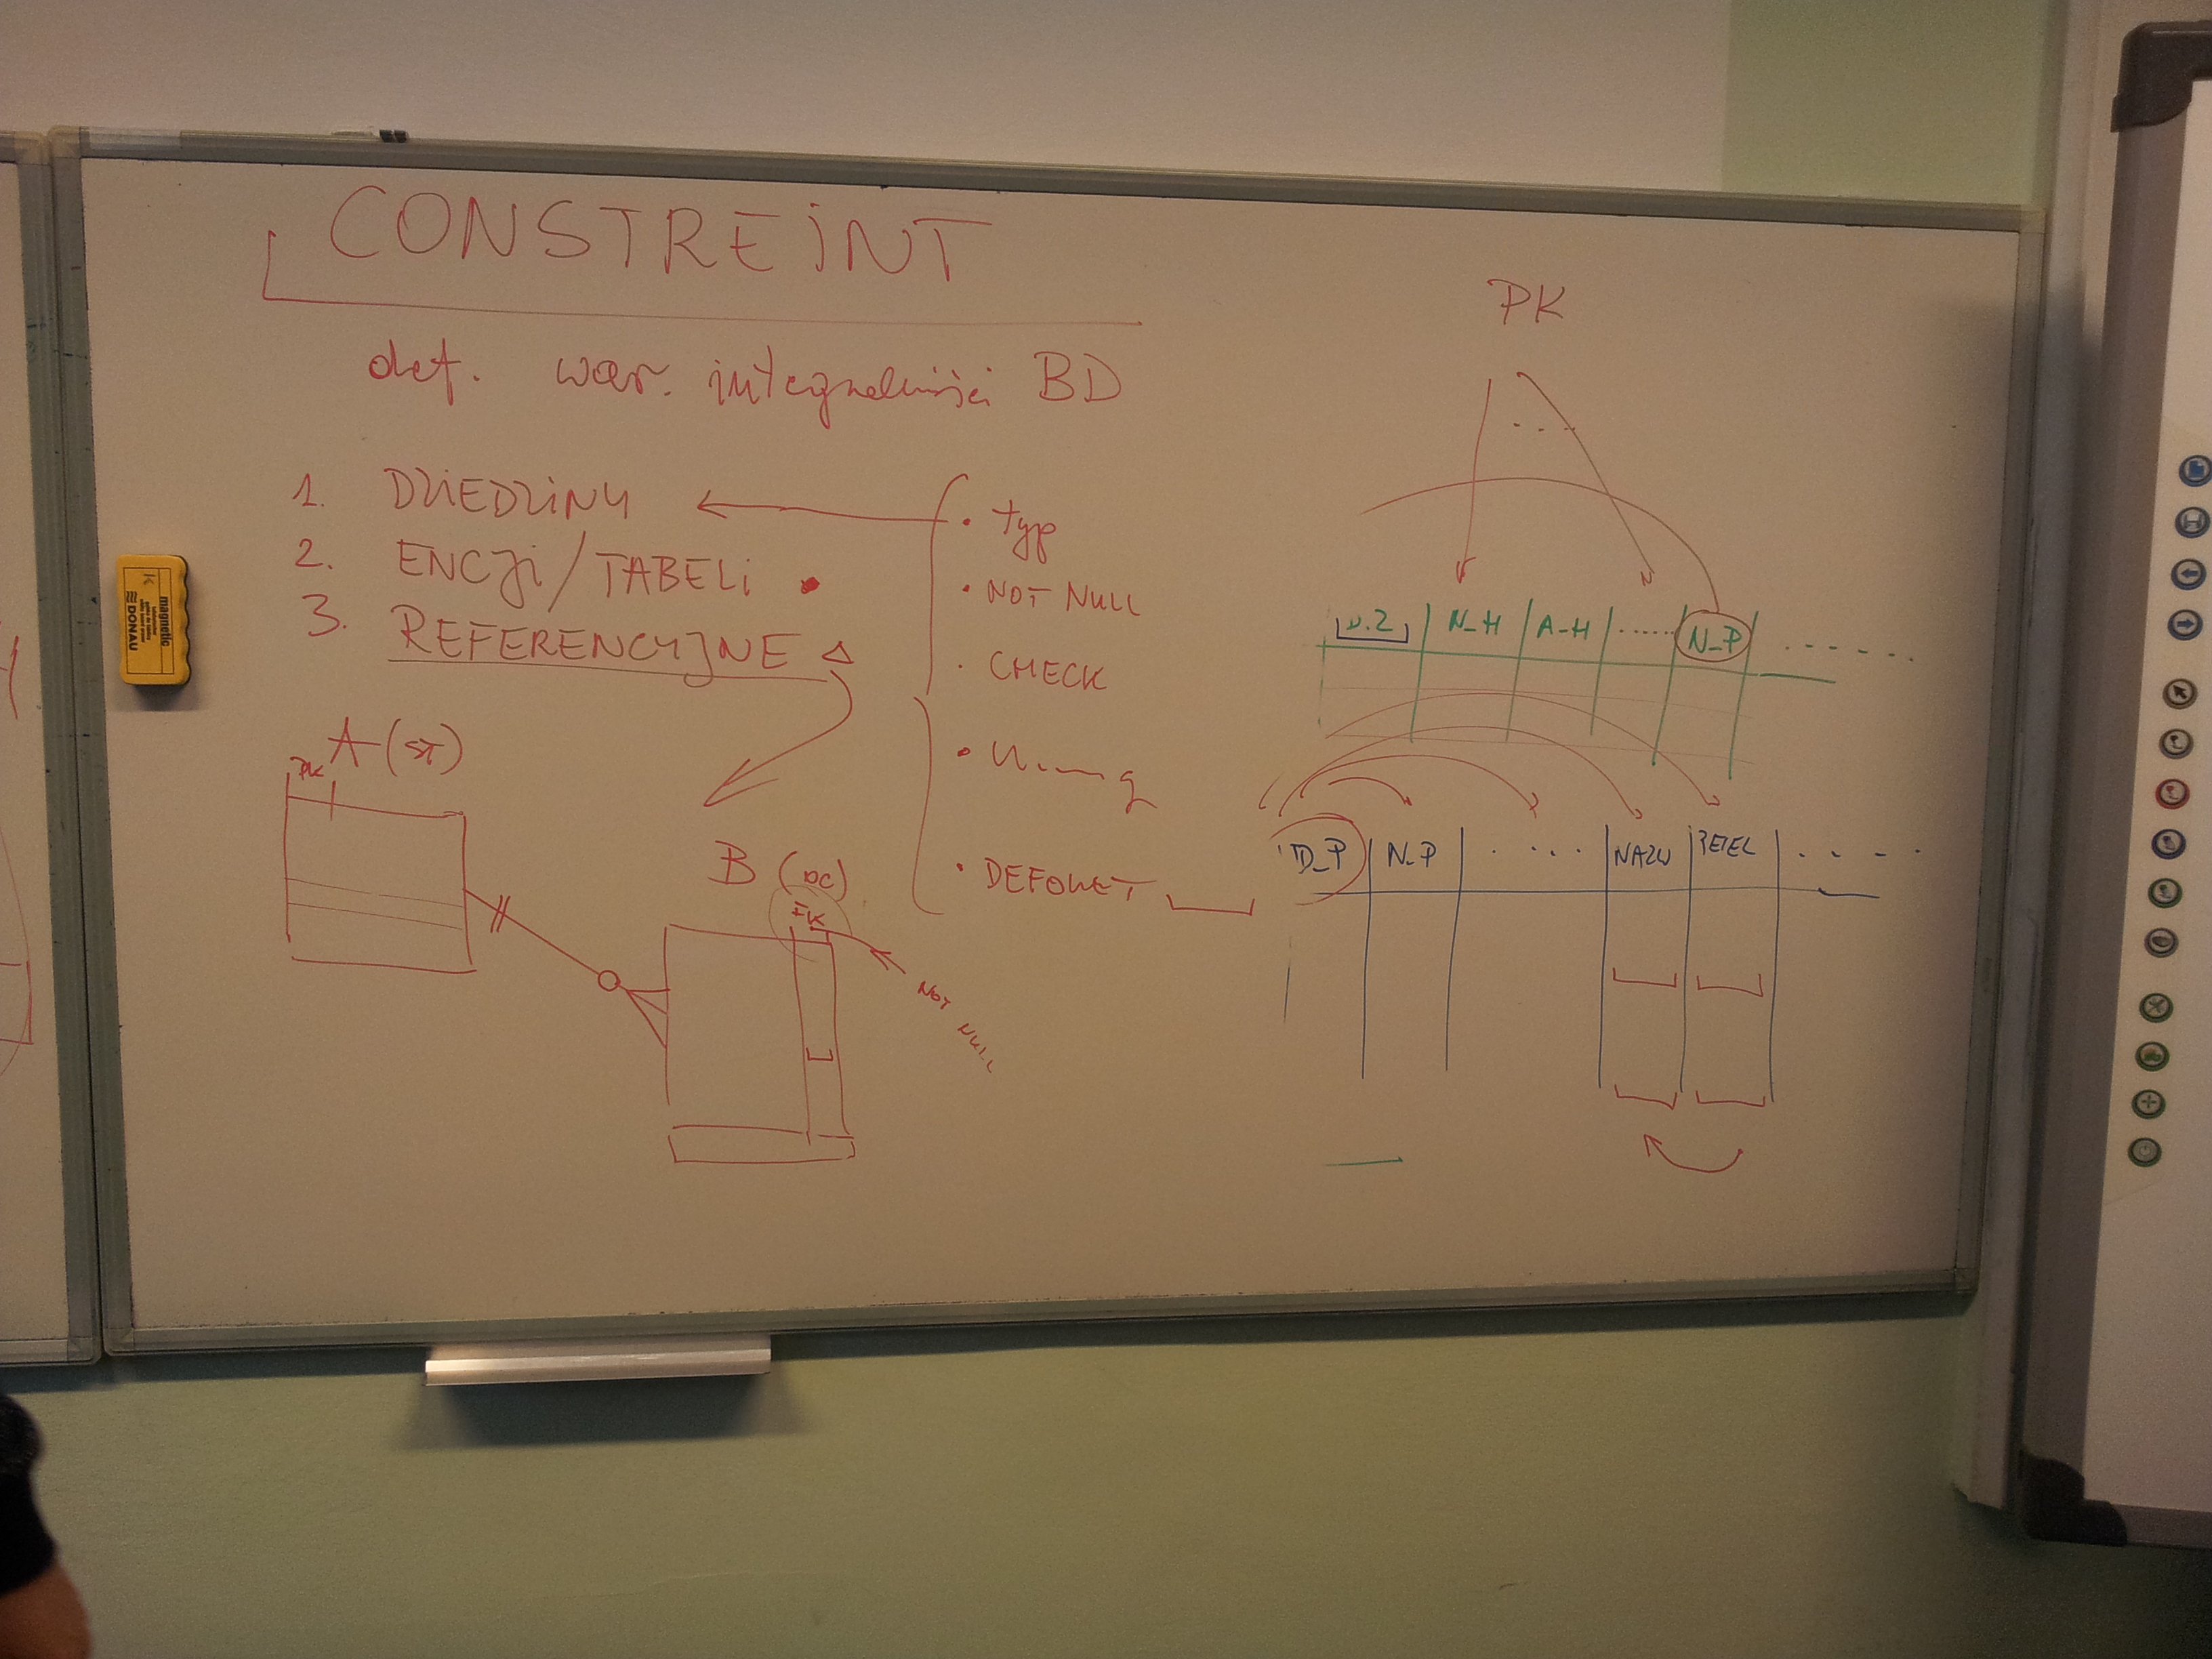 CONSTREINT
def. war. integralności BD
1. DZIEDZINY
2. ENCJI/TABELI
3. REFERENCYJNE
• typ
• NOT NULL
• CHECK
• DEFOULT
A (ST)
PK
B (DC)
FK
NOT NULL
PK
N_H A-H ...... N_P - - - - - -
ID_P N_P . . . . NAZW PESEL . - - - .
magnetic
DONAU